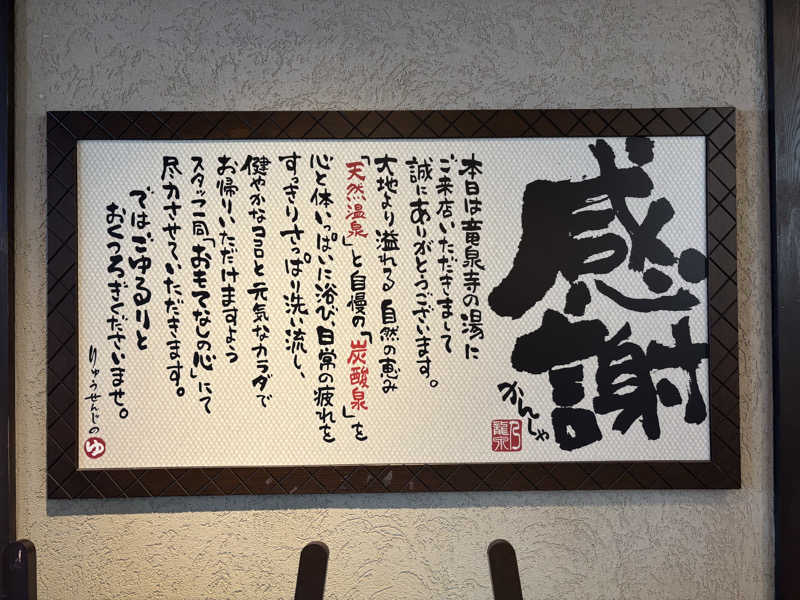 感謝
かんしゃ
本日は竜泉寺の湯に
ご来店いただきまして
誠にありがとうございます。
大地より溢れる自然の恵み
「天然温泉」と自慢の「炭酸泉」を
心と体いっぱいに浴び日常の疲れを
すっきりさっぱり洗い流し、
健やかなココロと元気なカラダで
お帰りいただけますよう
スタッフ一同「おもてなしの心」にて
尽力させていただきます。
ではごゆるりと
おくつろぎくださいませ。
りゅうせんじの
ゆ